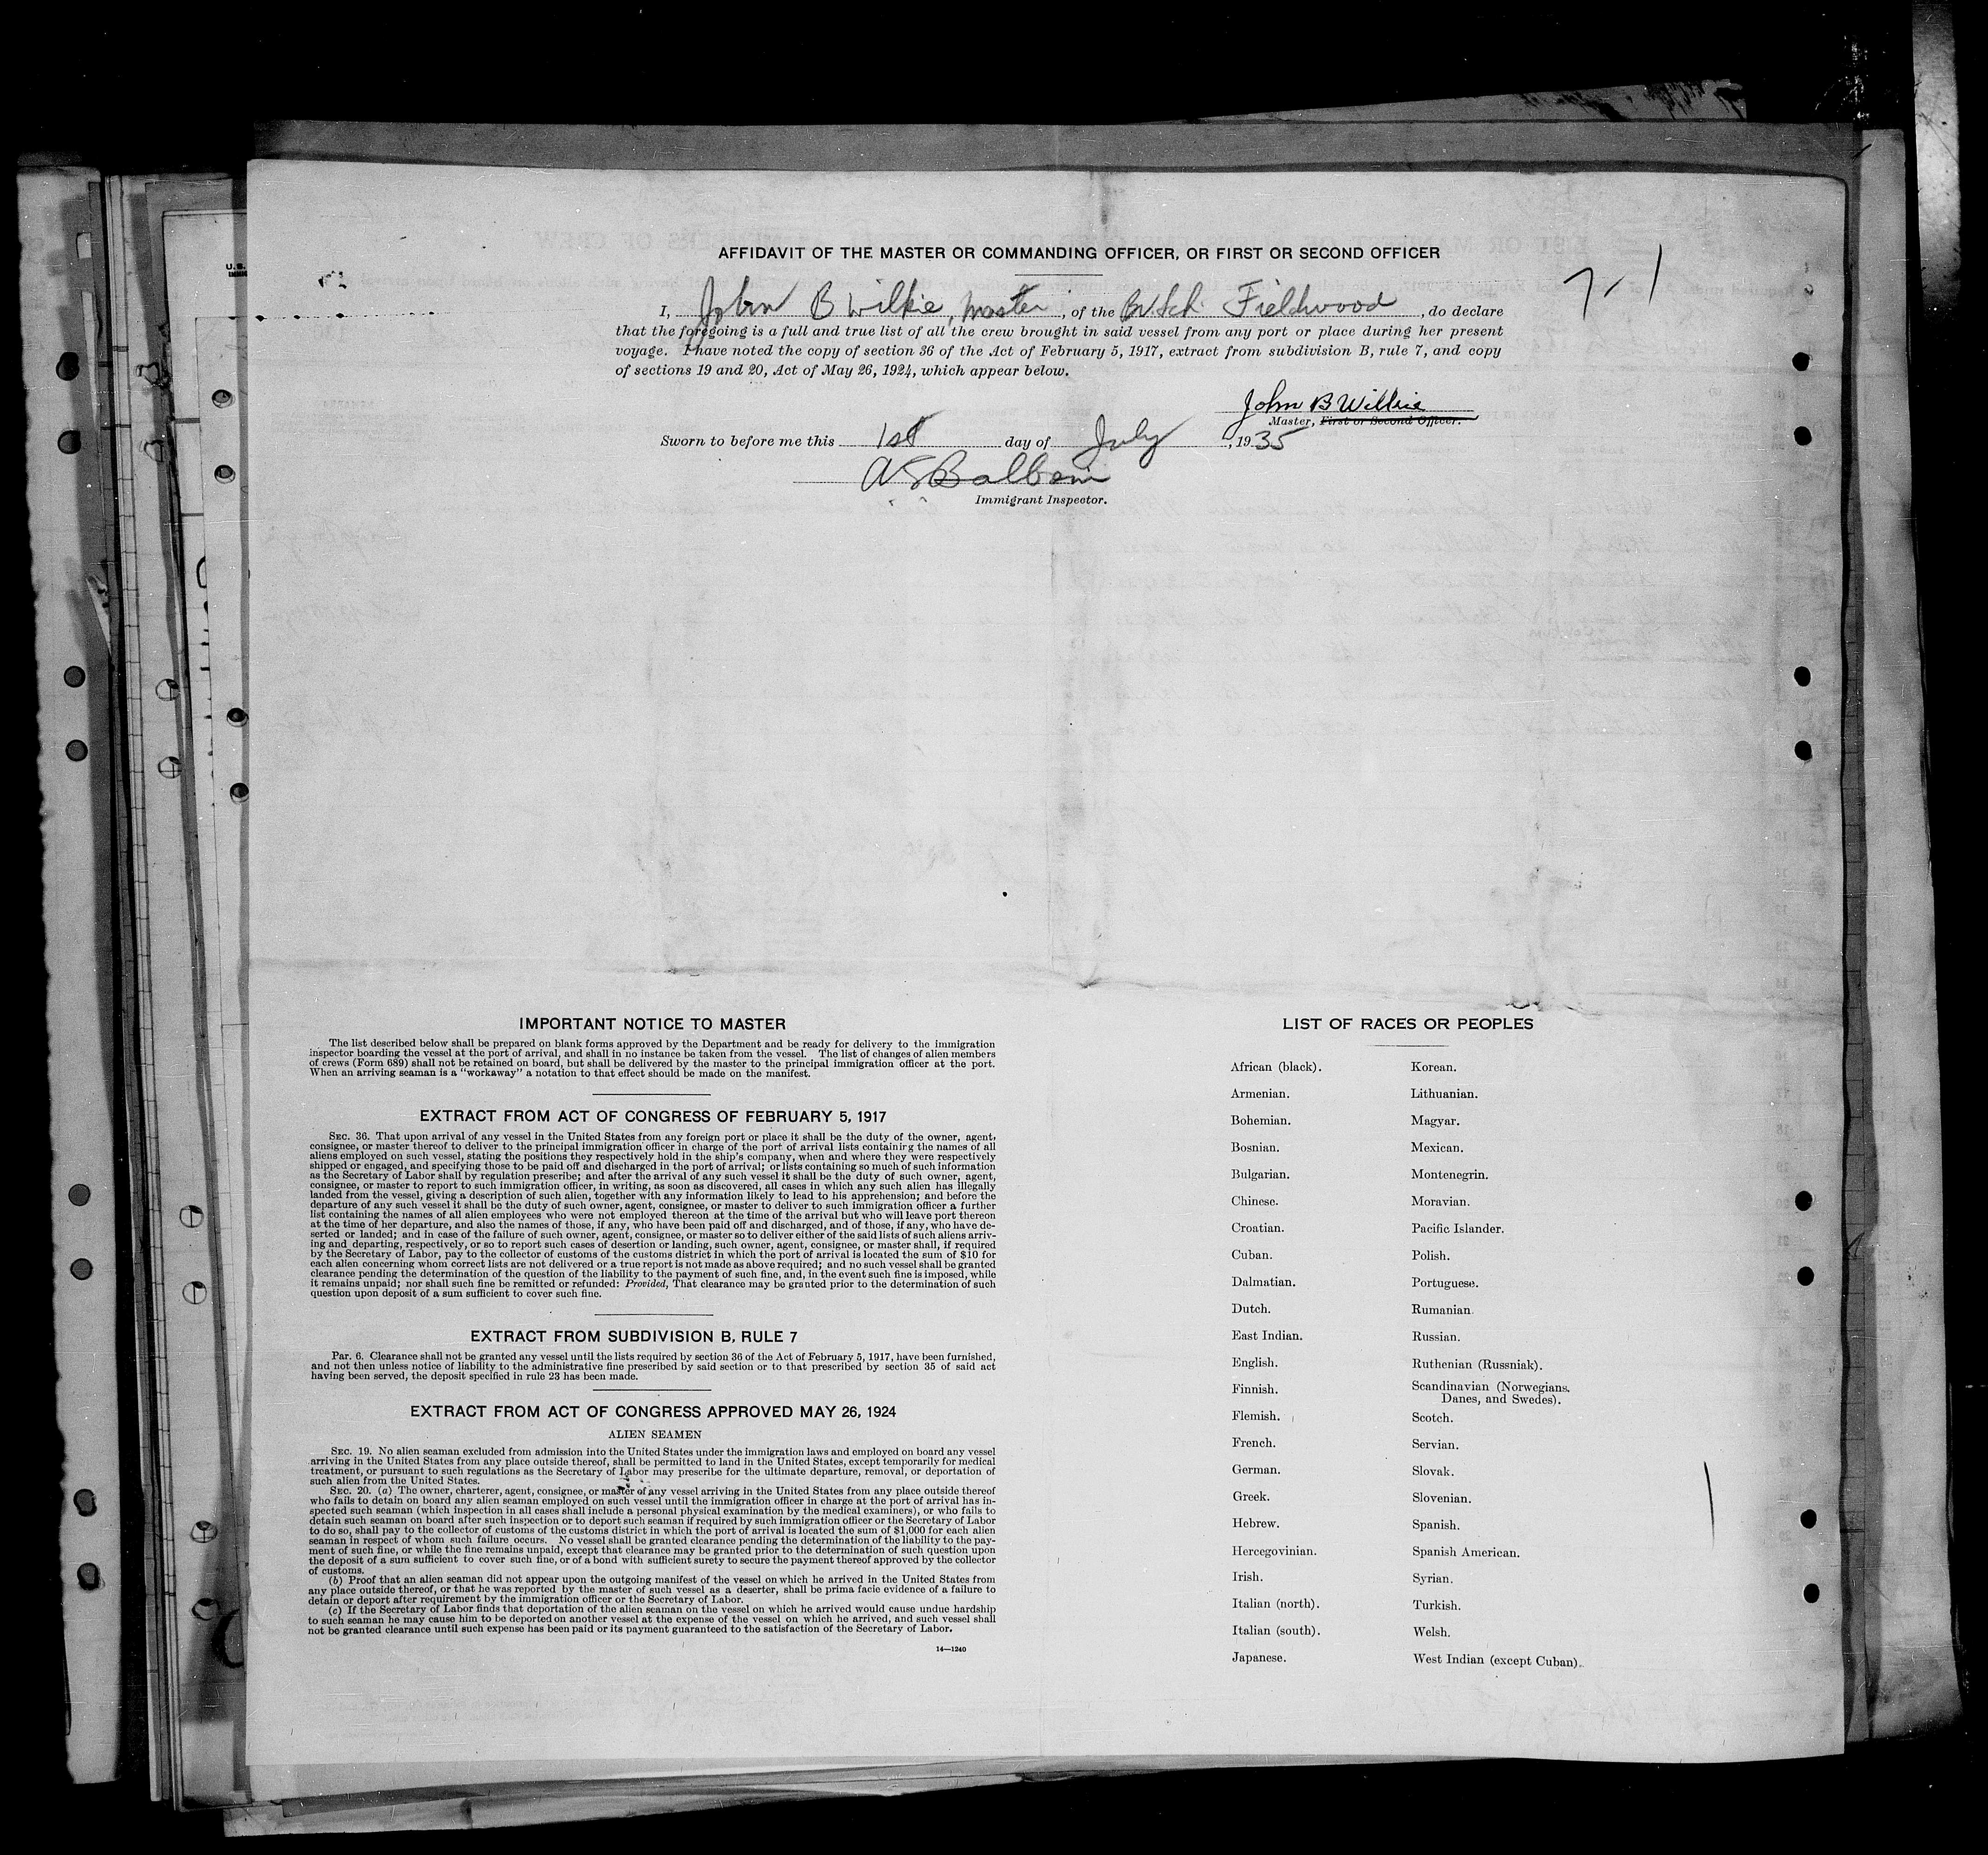 AFFIDAVIT OF THE MASTER OR COMMANDING OFFICER, OR FIRST OR SECOND OFFICER
7-1
I, John B Wilkie, master, of the Br Sch Fieldwood, do declare
that the foregoing is a full and true list of all the crew brought in said vessel from any port or place during her present
voyage. I have noted the copy of section 36 of the Act of February 5, 1917, extract from subdivision B, rule 7, and copy
of sections 19 and 20, Act of May 26, 1924, which appear below.
John B Wilkie
Master, First or Second Officer.
Sworn to before me this 1st day of July, 1935
Immigrant Inspector.
IMPORTANT NOTICE TO MASTER
The list described below shall be prepared on blank forms approved by the Department and be ready for delivery to the immigration
inspector boarding the vessel at the port of arrival, and shall in no instance be taken from the vessel. The list of changes of alien members
of crews (Form 689) shall not be retained on board, but shall be delivered by the master to the principal immigration officer at the port.
When an arriving seaman is a "workaway" a notation to that effect should be made on the manifest.
EXTRACT FROM ACT OF CONGRESS OF FEBRUARY 5, 1917
SEC. 36. That upon arrival of any vessel in the United States from any foreign port or place it shall be the duty of the owner, agent,
consignee, or master thereof to deliver to the principal immigration officer in charge of the port of arrival lists containing the names of all
aliens employed on such vessel, stating the positions they respectively hold in the ship's company, when and where they were respectively
shipped or engaged, and specifying those to be paid off and discharged in the port of arrival; or lists containing so much of such information
as the Secretary of Labor shall by regulation prescribe; and after the arrival of any such vessel it shall be the duty of such owner, agent,
consignee, or master to report to such immigration officer, in writing, as soon as discovered, all cases in which any such alien has illegally
landed from the vessel, giving a description of such alien, together with any information likely to lead to his apprehension; and before the
departure of any such vessel it shall be the duty of such owner, agent, consignee, or master to deliver to such immigration officer a further
list containing the names of all alien employees who were not employed thereon at the time of the arrival but who will leave port thereon
at the time of her departure, and also the names of those, if any, who have been paid off and discharged, and of those, if any, who have de-
serted or landed; and in case of the failure of such owner, agent, consignee, or master so to deliver either of the said lists of such aliens arriv-
ing and departing, respectively, or so to report such cases of desertion or landing, such owner, agent, consignee, or master shall, if required
by the Secretary of Labor, pay to the collector of customs of the customs district in which the port of arrival is located the sum of $10 for
each alien concerning whom correct lists are not delivered or a true report is not made as above required; and no such vessel shall be granted
clearance pending the determination of the question of the liability to the payment of such fine, and, in the event such fine is imposed, while
it remains unpaid; nor shall such fine be remitted or refunded: Provided, That clearance may be granted prior to the determination of such
question upon deposit of a sum sufficient to cover such fine.
EXTRACT FROM SUBDIVISION B, RULE 7
PAR. 6. Clearance shall not be granted any vessel until the lists required by section 36 of the Act of February 5, 1917, have been furnished,
and not then unless notice of liability to the administrative fine prescribed by said section or to that prescribed by section 35 of said act
having been served, the deposit specified in rule 23 has been made.
EXTRACT FROM ACT OF CONGRESS APPROVED MAY 26, 1924
ALIEN SEAMEN
SEC. 19. No alien seaman excluded from admission into the United States under the immigration laws and employed on board any vessel
arriving in the United States from any place outside thereof, shall be permitted to land in the United States, except temporarily for medical
treatment, or pursuant to such regulations as the Secretary of Labor may prescribe for the ultimate departure, removal, or deportation of
such alien from the United States.
SEC. 20. (a) The owner, charterer, agent, consignee, or master of any vessel arriving in the United States from any place outside thereof
who fails to detain on board any alien seaman employed on such vessel until the immigration officer in charge at the port of arrival has in-
spected such seaman (which inspection in all cases shall include a personal physical examination by the medical examiners), or who fails to
detain such seaman on board after such inspection or to deport such seaman if required by such immigration officer or the Secretary of Labor
to do so, shall pay to the collector of customs of the customs district in which the port of arrival is located the sum of $1,000 for each alien
seaman in respect of whom such failure occurs. No vessel shall be granted clearance pending the determination of the liability to the pay-
ment of such fine, or while the fine remains unpaid, except that clearance may be granted prior to the determination of such question upon
the deposit of a sum sufficient to cover such fine, or of a bond with sufficient surety to secure the payment thereof approved by the collector
of customs.
(b) Proof that an alien seaman did not appear upon the outgoing manifest of the vessel on which he arrived in the United States from
any place outside thereof, or that he was reported by the master of such vessel as a deserter, shall be prima facie evidence of a failure to
detain or deport after requirement by the immigration officer or the Secretary of Labor.
(c) If the Secretary of Labor finds that deportation of the alien seaman on the vessel on which he arrived would cause undue hardship
to such seaman he may cause him to be deported on another vessel at the expense of the vessel on which he arrived, and such vessel shall
not be granted clearance until such expense has been paid or its payment guaranteed to the satisfaction of the Secretary of Labor.
14—1240
LIST OF RACES OR PEOPLES
African (black).
Armenian.
Bohemian.
Bosnian.
Bulgarian.
Chinese.
Croatian.
Cuban.
Dalmatian.
Dutch.
East Indian.
English.
Finnish.
Flemish.
French.
German.
Greek.
Hebrew.
Hercegovinian.
Irish.
Italian (north).
Italian (south).
Japanese.
Korean.
Lithuanian.
Magyar.
Mexican.
Montenegrin.
Moravian.
Pacific Islander.
Polish.
Portuguese.
Rumanian.
Russian.
Ruthenian (Russniak).
Scandinavian (Norwegians,
Danes, and Swedes).
Scotch.
Servian.
Slovak.
Slovenian.
Spanish.
Spanish American.
Syrian.
Turkish.
Welsh.
West Indian (except Cuban).